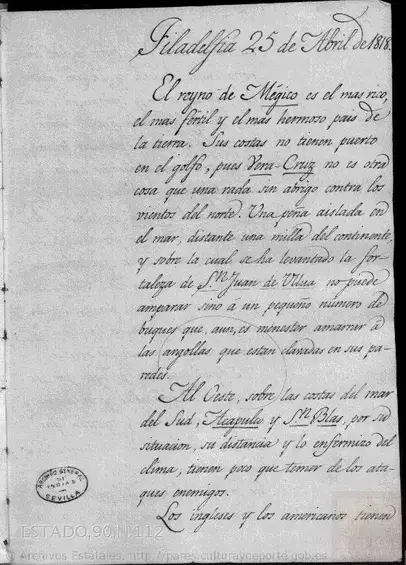 Filadelfia 25 de Abril de 1818.
El reyno de Mégico es el mas rico,
el mas fértil y el mas hermoso pais de
la tierra. Sus costas no tienen puerto
en el golfo, pues Vera-Cruz no es otra
cosa que una rada sin abrigo contra los
vientos del norte. Una peña aislada en
el mar, distante una milla del continente,
y sobre la cual se ha levantado la for-
taleza de Sn. Juan de Ulua no puede
amparar sino á un pequeño número de
buques que, aun, es menester amarrar á
las argollas que estan clavadas en sus pa-
redes.
Al Oeste, sobre las costas del mar
del Sud, Acapulco y Sn. Blas, por su
situacion, su distancia y lo enfermizo del
clima, tienen poco que temer de los ata-
ques enemigos.
Los ingleses y los americanos tienen
ARCHIVO GENERAL
DE
INDIAS
SEVILLA
ESTADO,90,N.112
© Archivos Estatales, http://pares.culturaydeporte.gob.es